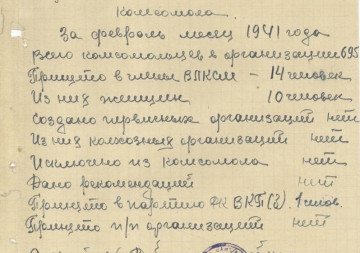 комсомола.
За февраль месец 1941 года
Всего комсомольцев в организации 695
Принято в члены ВЛКСМ – 14 человек
Из них женщин 10 человек
Создано первичных организаций нет
Из них колхозных организаций нет
Исключено из комсомола нет
Дано рекомендаций нет
Принято в партию РК ВКП(б) 1 член.
Принято п/п организаций нет